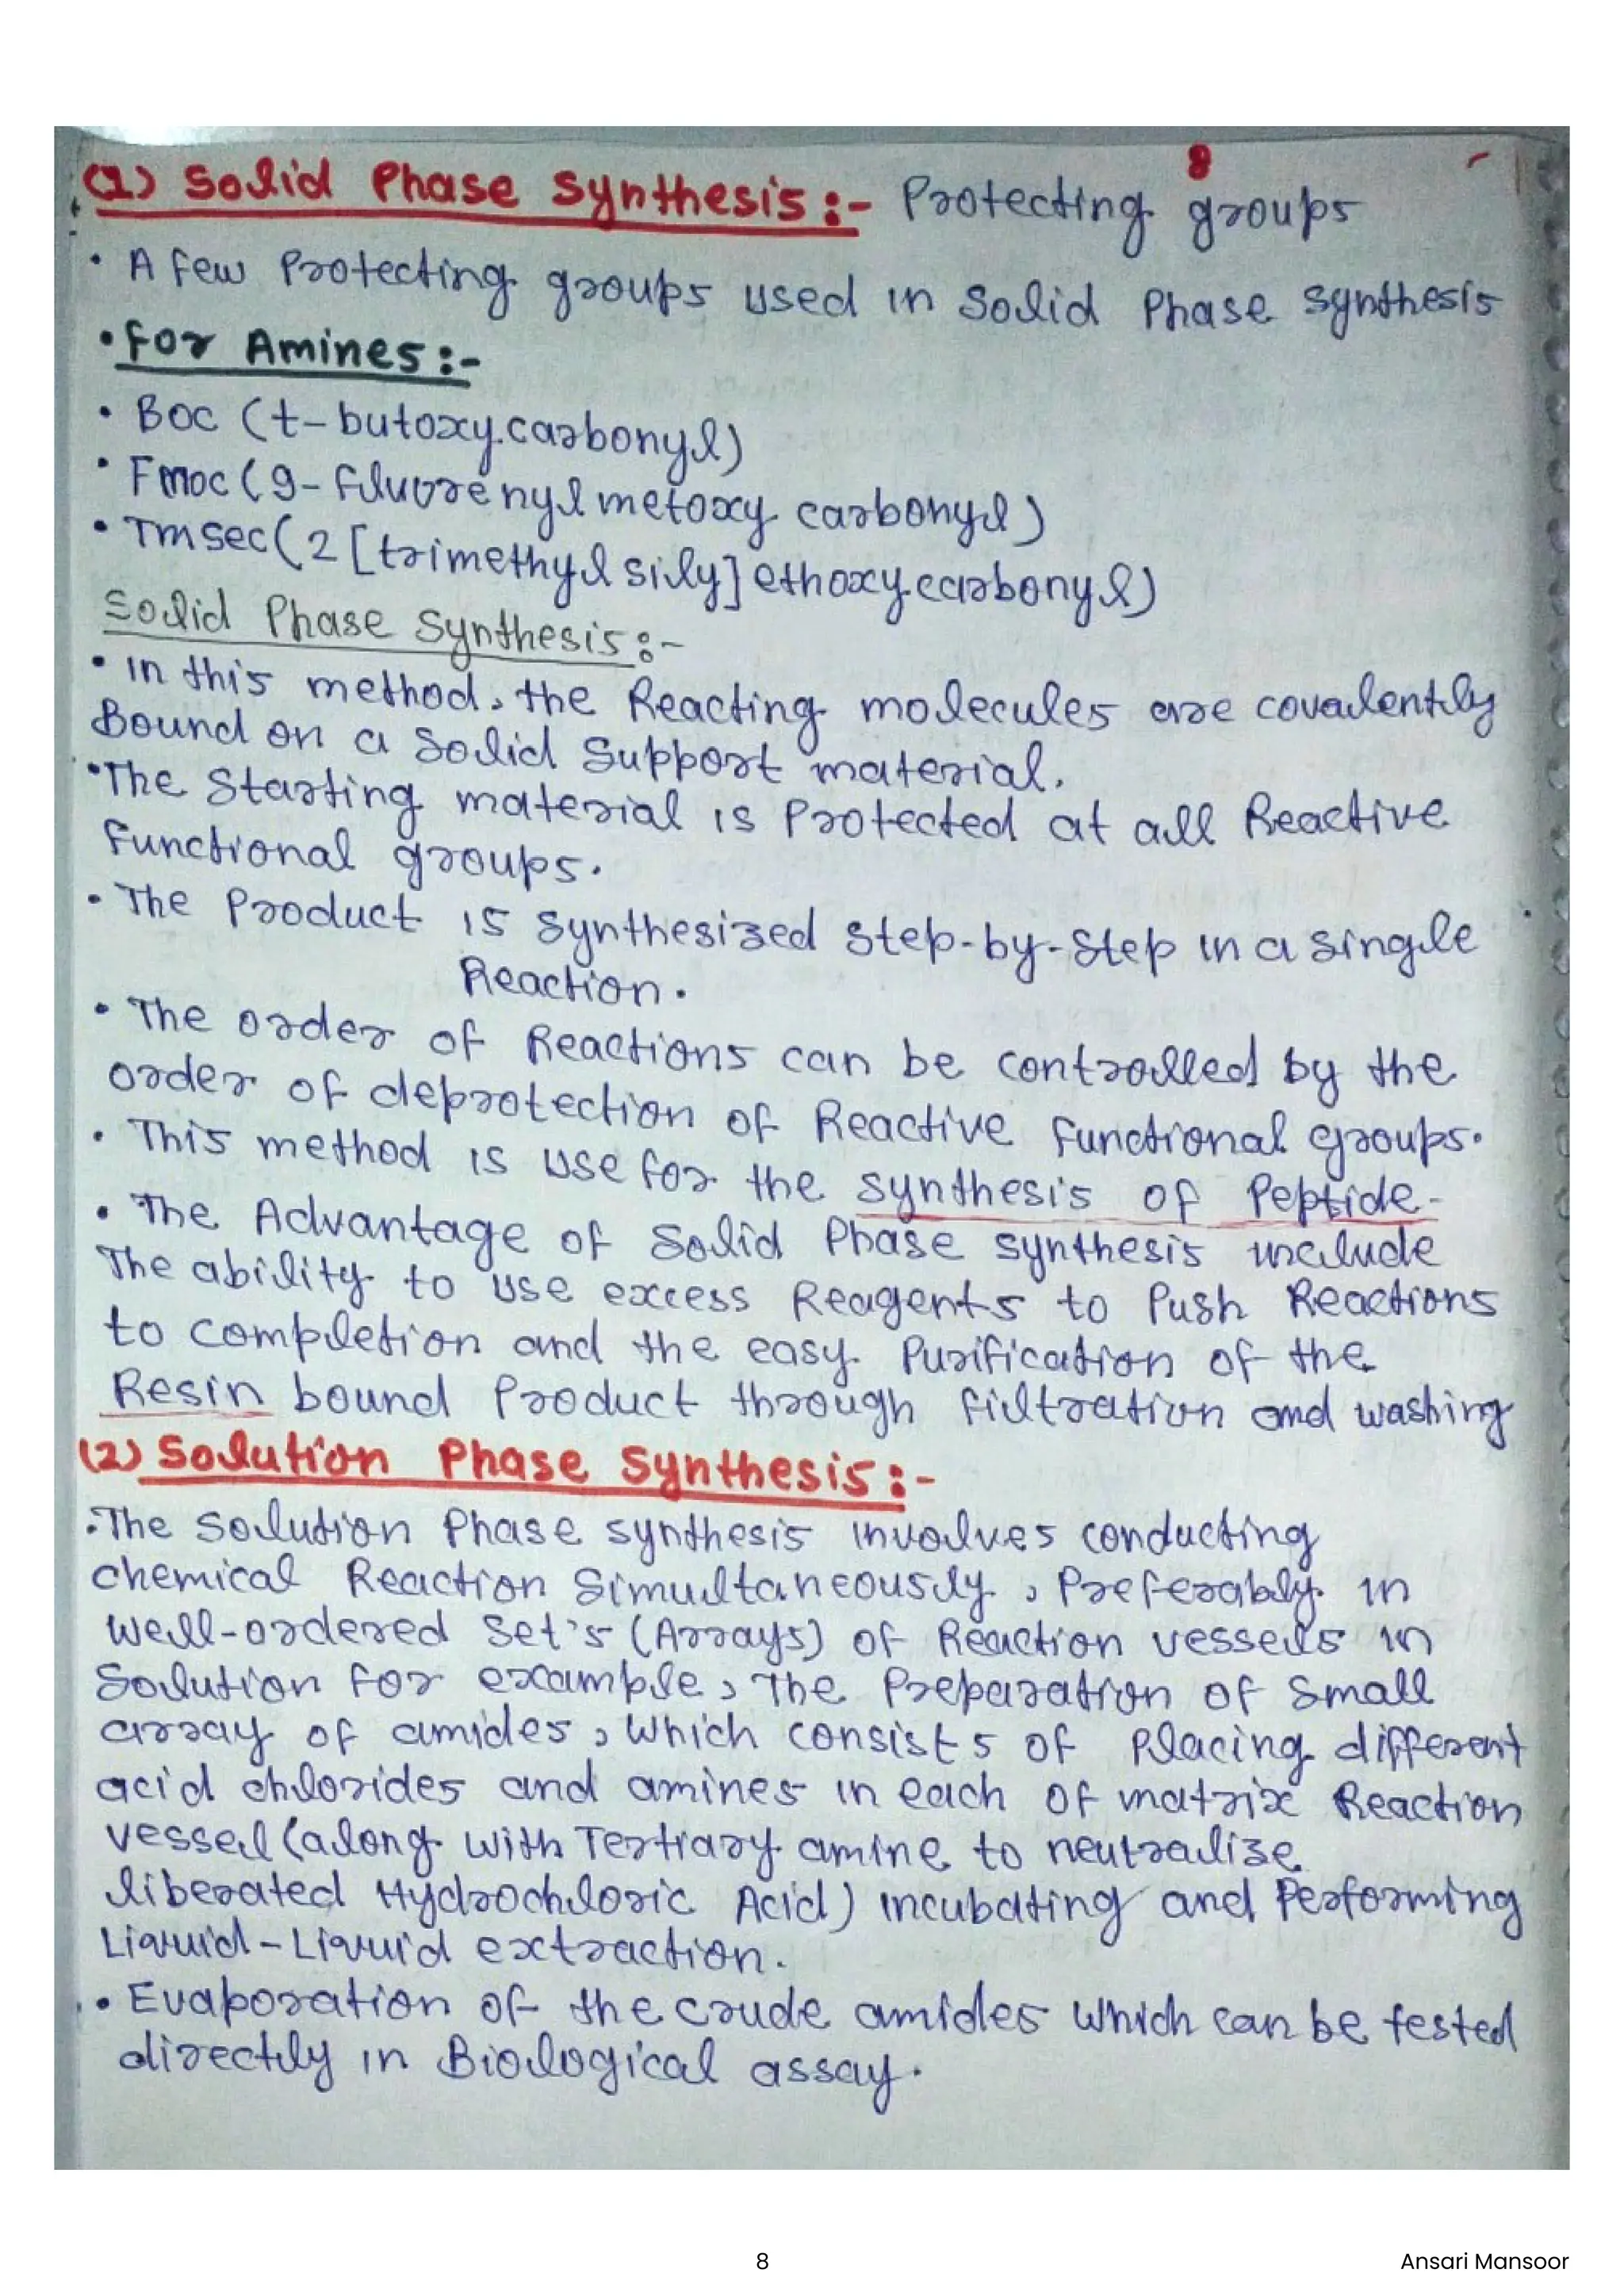 8
(1) Solid Phase Synthesis :- Protecting groups
• A few Protecting groups used in Solid Phase synthesis
• For Amines :-
• Boc (t-butoxy carbonyl)
• Fmoc (9-fluorenyl metoxy carbonyl)
• Tmsec (2 [trimethyl sily] ethoxy carbonyl)
Solid Phase Synthesis :-
• In this method, the Reacting molecules are covalently
Bound on a Solid Support material.
• The Starting material is Protected at all Reactive
functional groups.
• The Product is synthesized step-by-step in a single
Reaction.
• The order of Reactions can be controlled by the
order of deprotection of Reactive functional groups.
• This method is use for the synthesis of Peptide-
• The Advantage of Solid Phase synthesis include
The ability to use excess Reagents to Push Reactions
to completion and the easy Purification of the
Resin bound Product through filtration and washing
(2) Solution Phase Synthesis :-
• The Solution Phase synthesis involves conducting
chemical Reaction Simultaneously, Preferably in
well-ordered Set's (Arrays) of Reaction vessels in
Solution for example, The Preparation of Small
array of amides, which consists of Placing different
acid chlorides and amines in each of matrix Reaction
vessel (along with Tertiary amine to neutralize
liberated Hydrochloric Acid) incubating and Performing
Liquid-Liquid extraction.
• Evaporation of the crude amides which can be tested
directly in Biological assay.
8
Ansari Mansoor